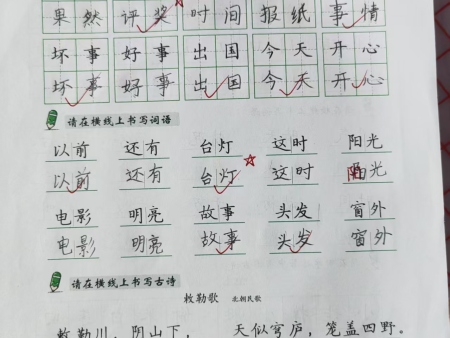 果然 评奖 时间 报纸 事情
坏事 好事 出国 今天 开心
坏事 好事 出国 今天 开心
请在横线上书写词语
以前 还有 台灯 这时 阳光
以前 还有 台灯 这时 阳光
电影 明亮 故事 头发 窗外
电影 明亮 故事 头发 窗外
请在横线上书写古诗
敕勒歌 北朝民歌
敕勒川，阴山下， 天似穹庐，笼盖四野。